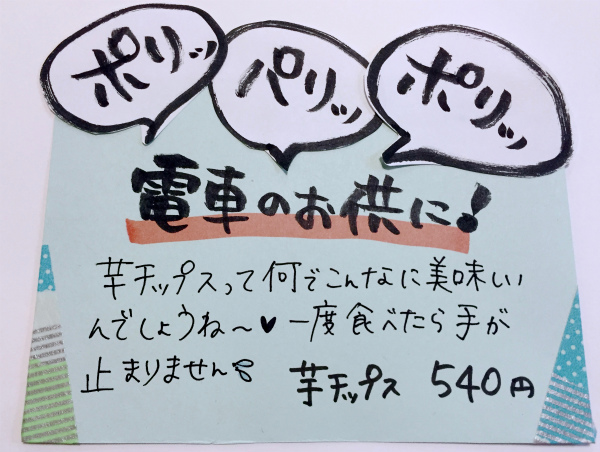 ポリッ
パリッ
ポリッ
電車のお供に!
芋チップスって何でこんなに美味しい
んでしょうね〜♥一度食べたら手が
止まりません
芋チップス 540円